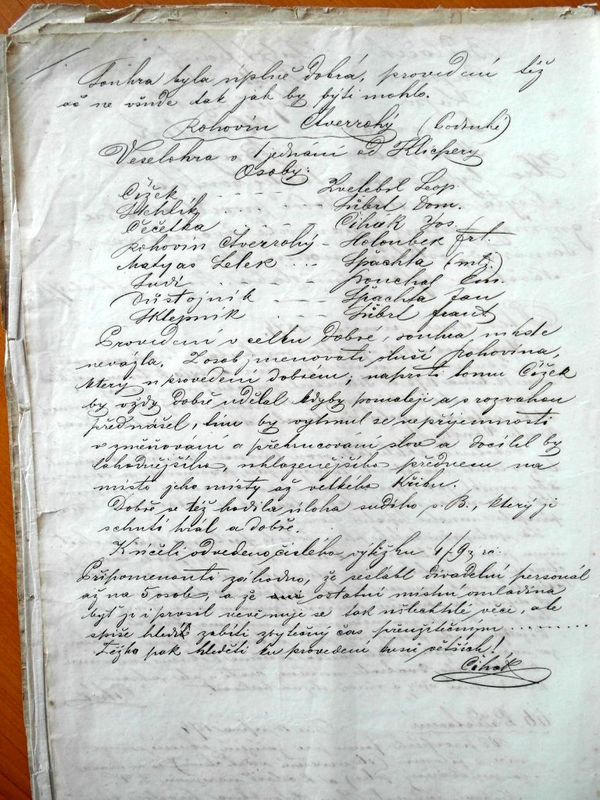 Souhra byla úplně dobrá, provedení též
ač ne všude tak jak by býti mohlo.
Rohovín Čtverrohý (podruhé)
Veselohra o 1 jednání od Klicpery
Osoby:
Čížek - - - - Zvelebil Leop.
Stehlík - - - - Šúbrt Dom.
Čečetka - - - - Cihák Jos.
Rohovín Čtverrohý - Holoubek frt.
Matyas Lelek - - - Špachta
Sudí - - - - Pouchal
Důstojník - - - - Špachta Jan
Sklepník - - - - Šúbrt frant
Provedení v celku dobré, souhra míste
nevázla. Z osob jmenovati sluší Rohovína,
který v provedení dobrém, naproti tomu Čížek
by vždy dobře udělal kdyby pomaleji a s rozvahou
přednášel, tím by vyhnul se nepříjemnosti
v zněňovaní a překrucovaní slov a docílil by
lahodnějšího, uhlazenějšího přednesu na
místo jeho místy až velkého křiku.
Dobře se též hodila úloha sudího p. B., který ji
s chutí hrál a dobře.
K účeli odvedeno čistého výtěžku
Připomenouti záhodno, že seslabl divadelní personál
až na 5 osob, a je ostatní místní omladina
byť je i prosil nevěnuje se tak šlechetné věci, ale
spíše hledí zabíti zbytečný čas přeužitečným .........
Těžko pak hleděti ku provedení kusů větších!
Cihák